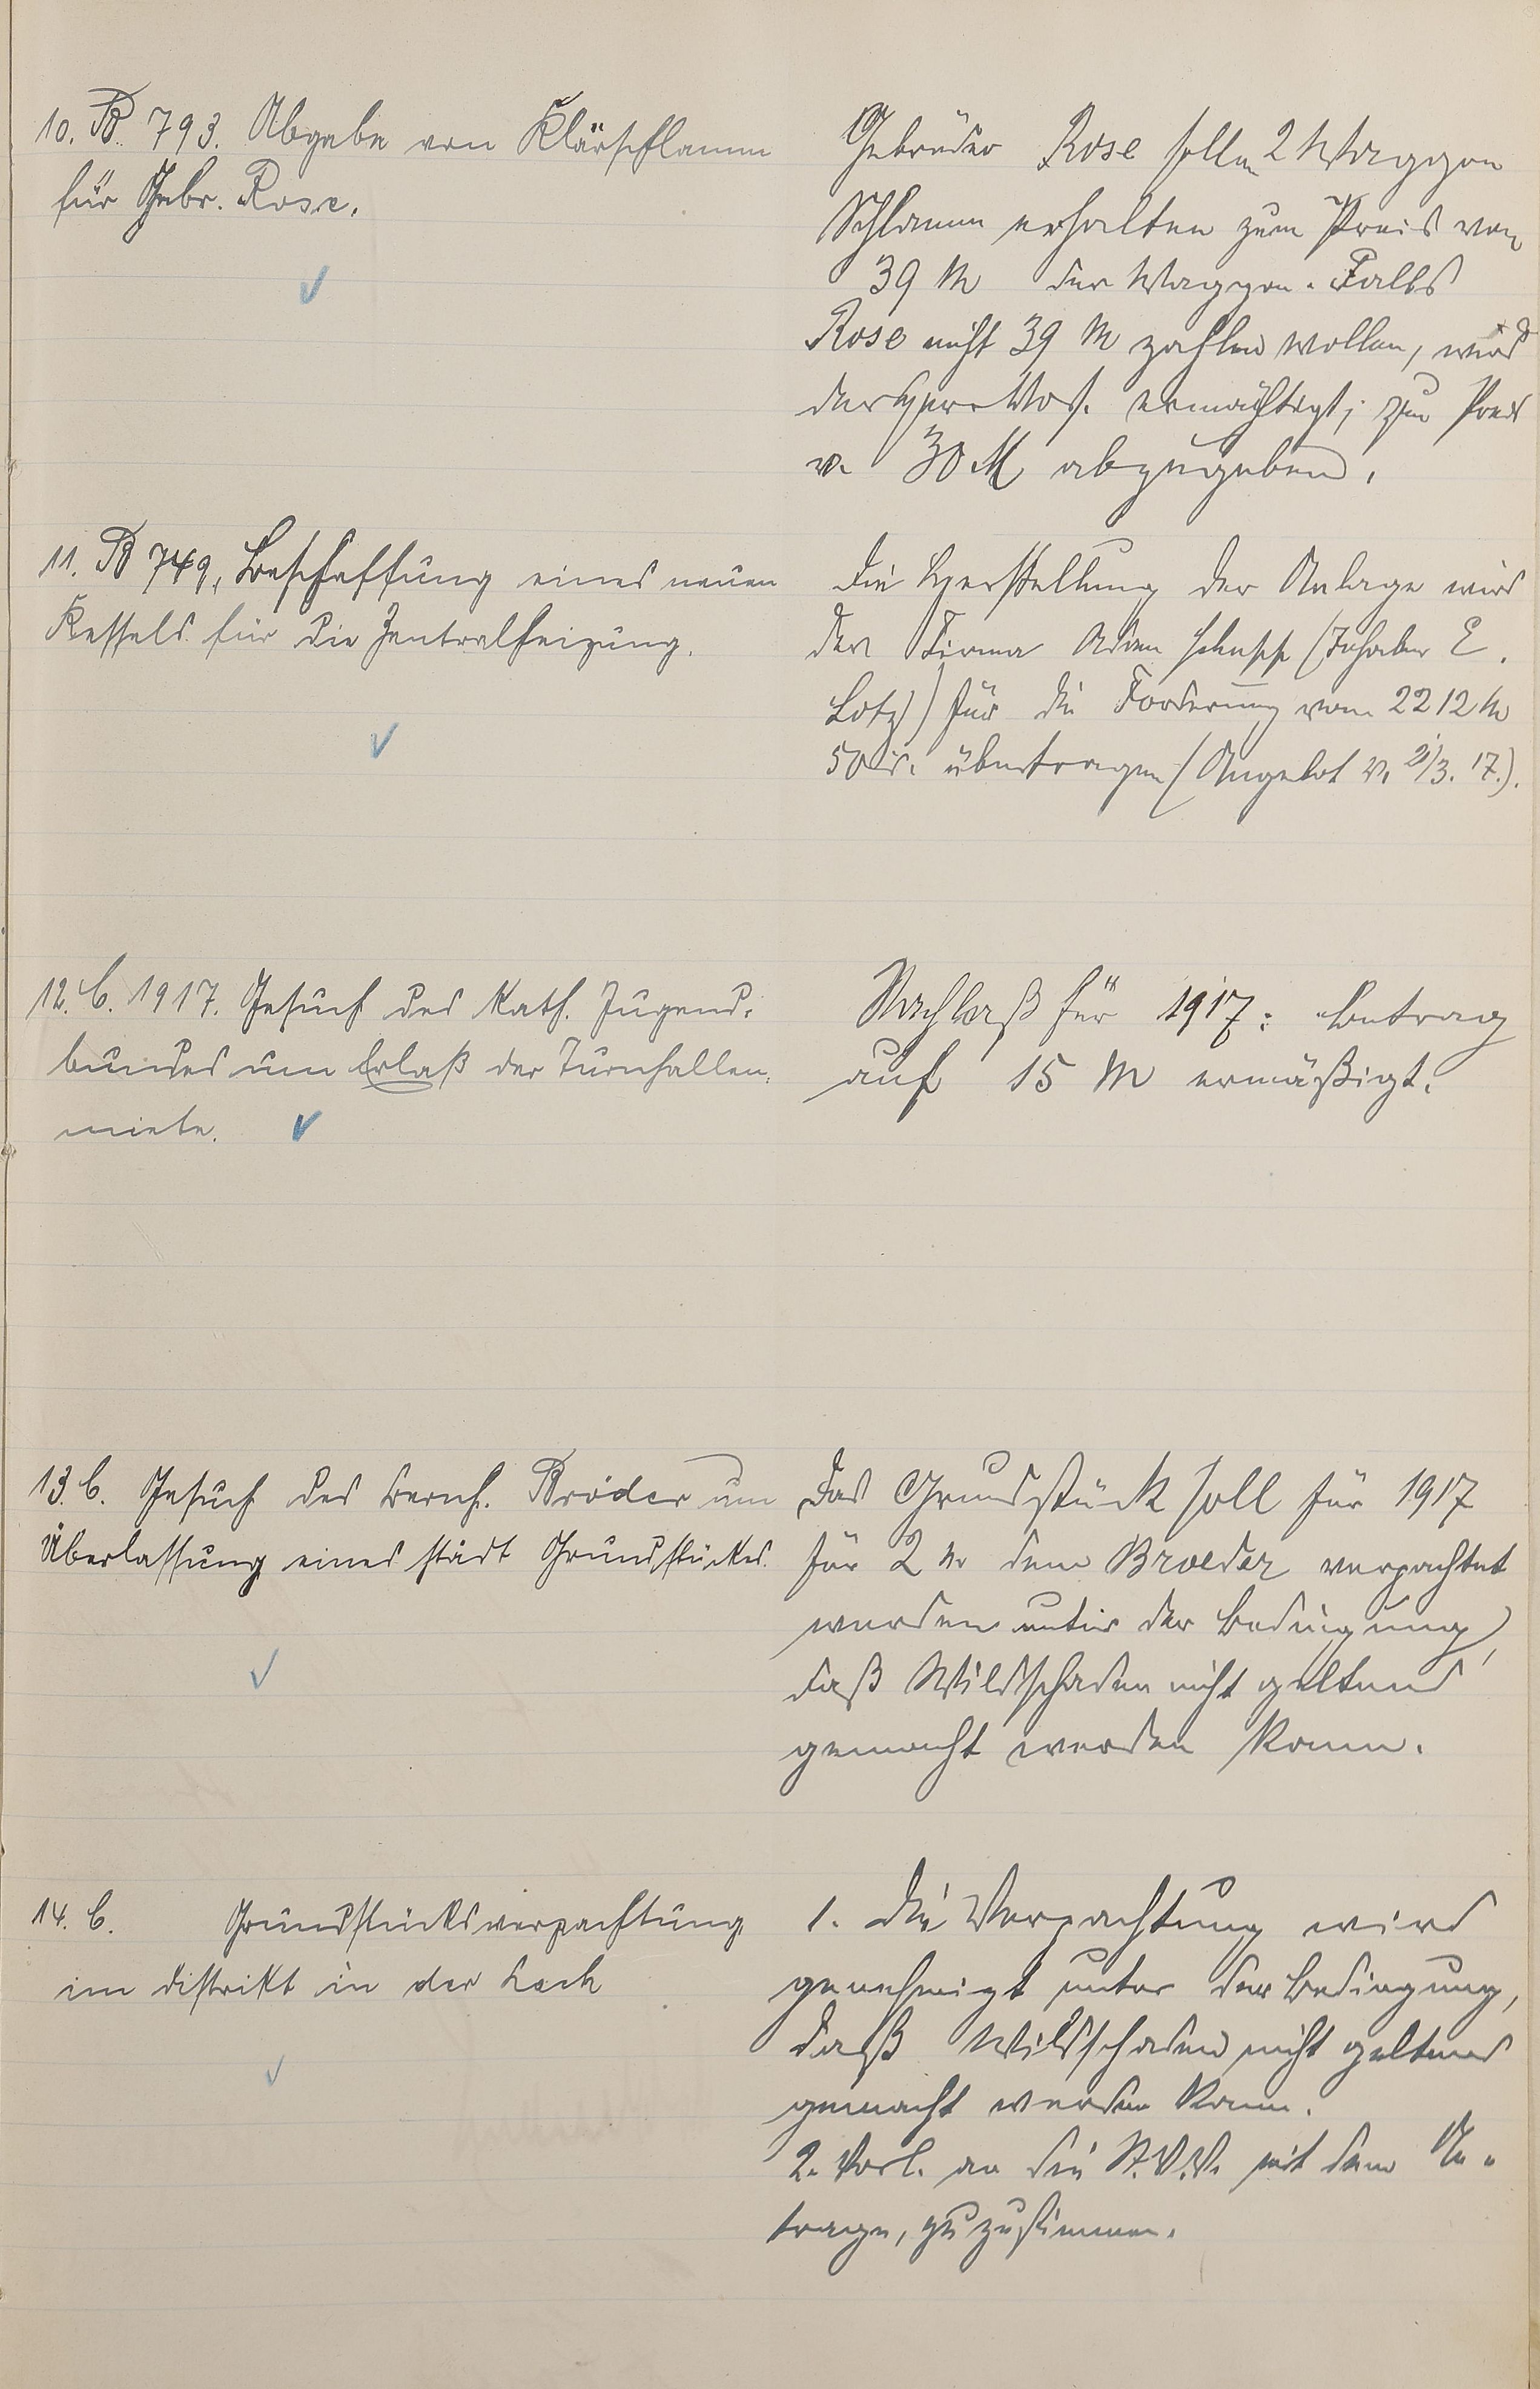 10. B. 793. Abgabe von Klärschlamm
für Gebr. Rose.
Gebrüder Rose sollen 2 Waggon
Schlamm erhalten zum Preis von
39 M den Waggon. Falls
Rose nicht 39 M zahlen wollen, wird
der Herr Vors. ermächtigt, zum Preis
v. 30 M abzugeben.
11. B 749, Beschaffung eines neuen
Kessels für die Zentralheizung.
Die Herstellung der Anlage wird
der Firma Adam (Inhaber E.
Lotz) für die Forderung von 2212 M
50 übertragen (Angebot v. /3. 17.).
12. C. 1917. Gesuch des Kath. Jugend-
bundes um Erlaß der Turnhallen-
miete.
Nachlaß für 1917: Betrag
auf 15 M ermäßigt.
13. C. Gesuch des Bernh. Bröder um
Überlassung eines städt Grundstückes.
Das Grundstück soll für 1917
für 2 M dem Broeder verpachtet
werden unter der Bedingung,
daß Wildschaden nicht geltend
gemacht werden kann.
14. C. Grundstücksverpachtung
im Distrikt in der Lach
1. Die Verpachtung wird
genehmigt unter der Bedingung,
daß Wildschaden nicht geltend
gemacht werden kann.
2. Vorl. an die St.V.V. mit dem An-
trage, zuzustimmen.